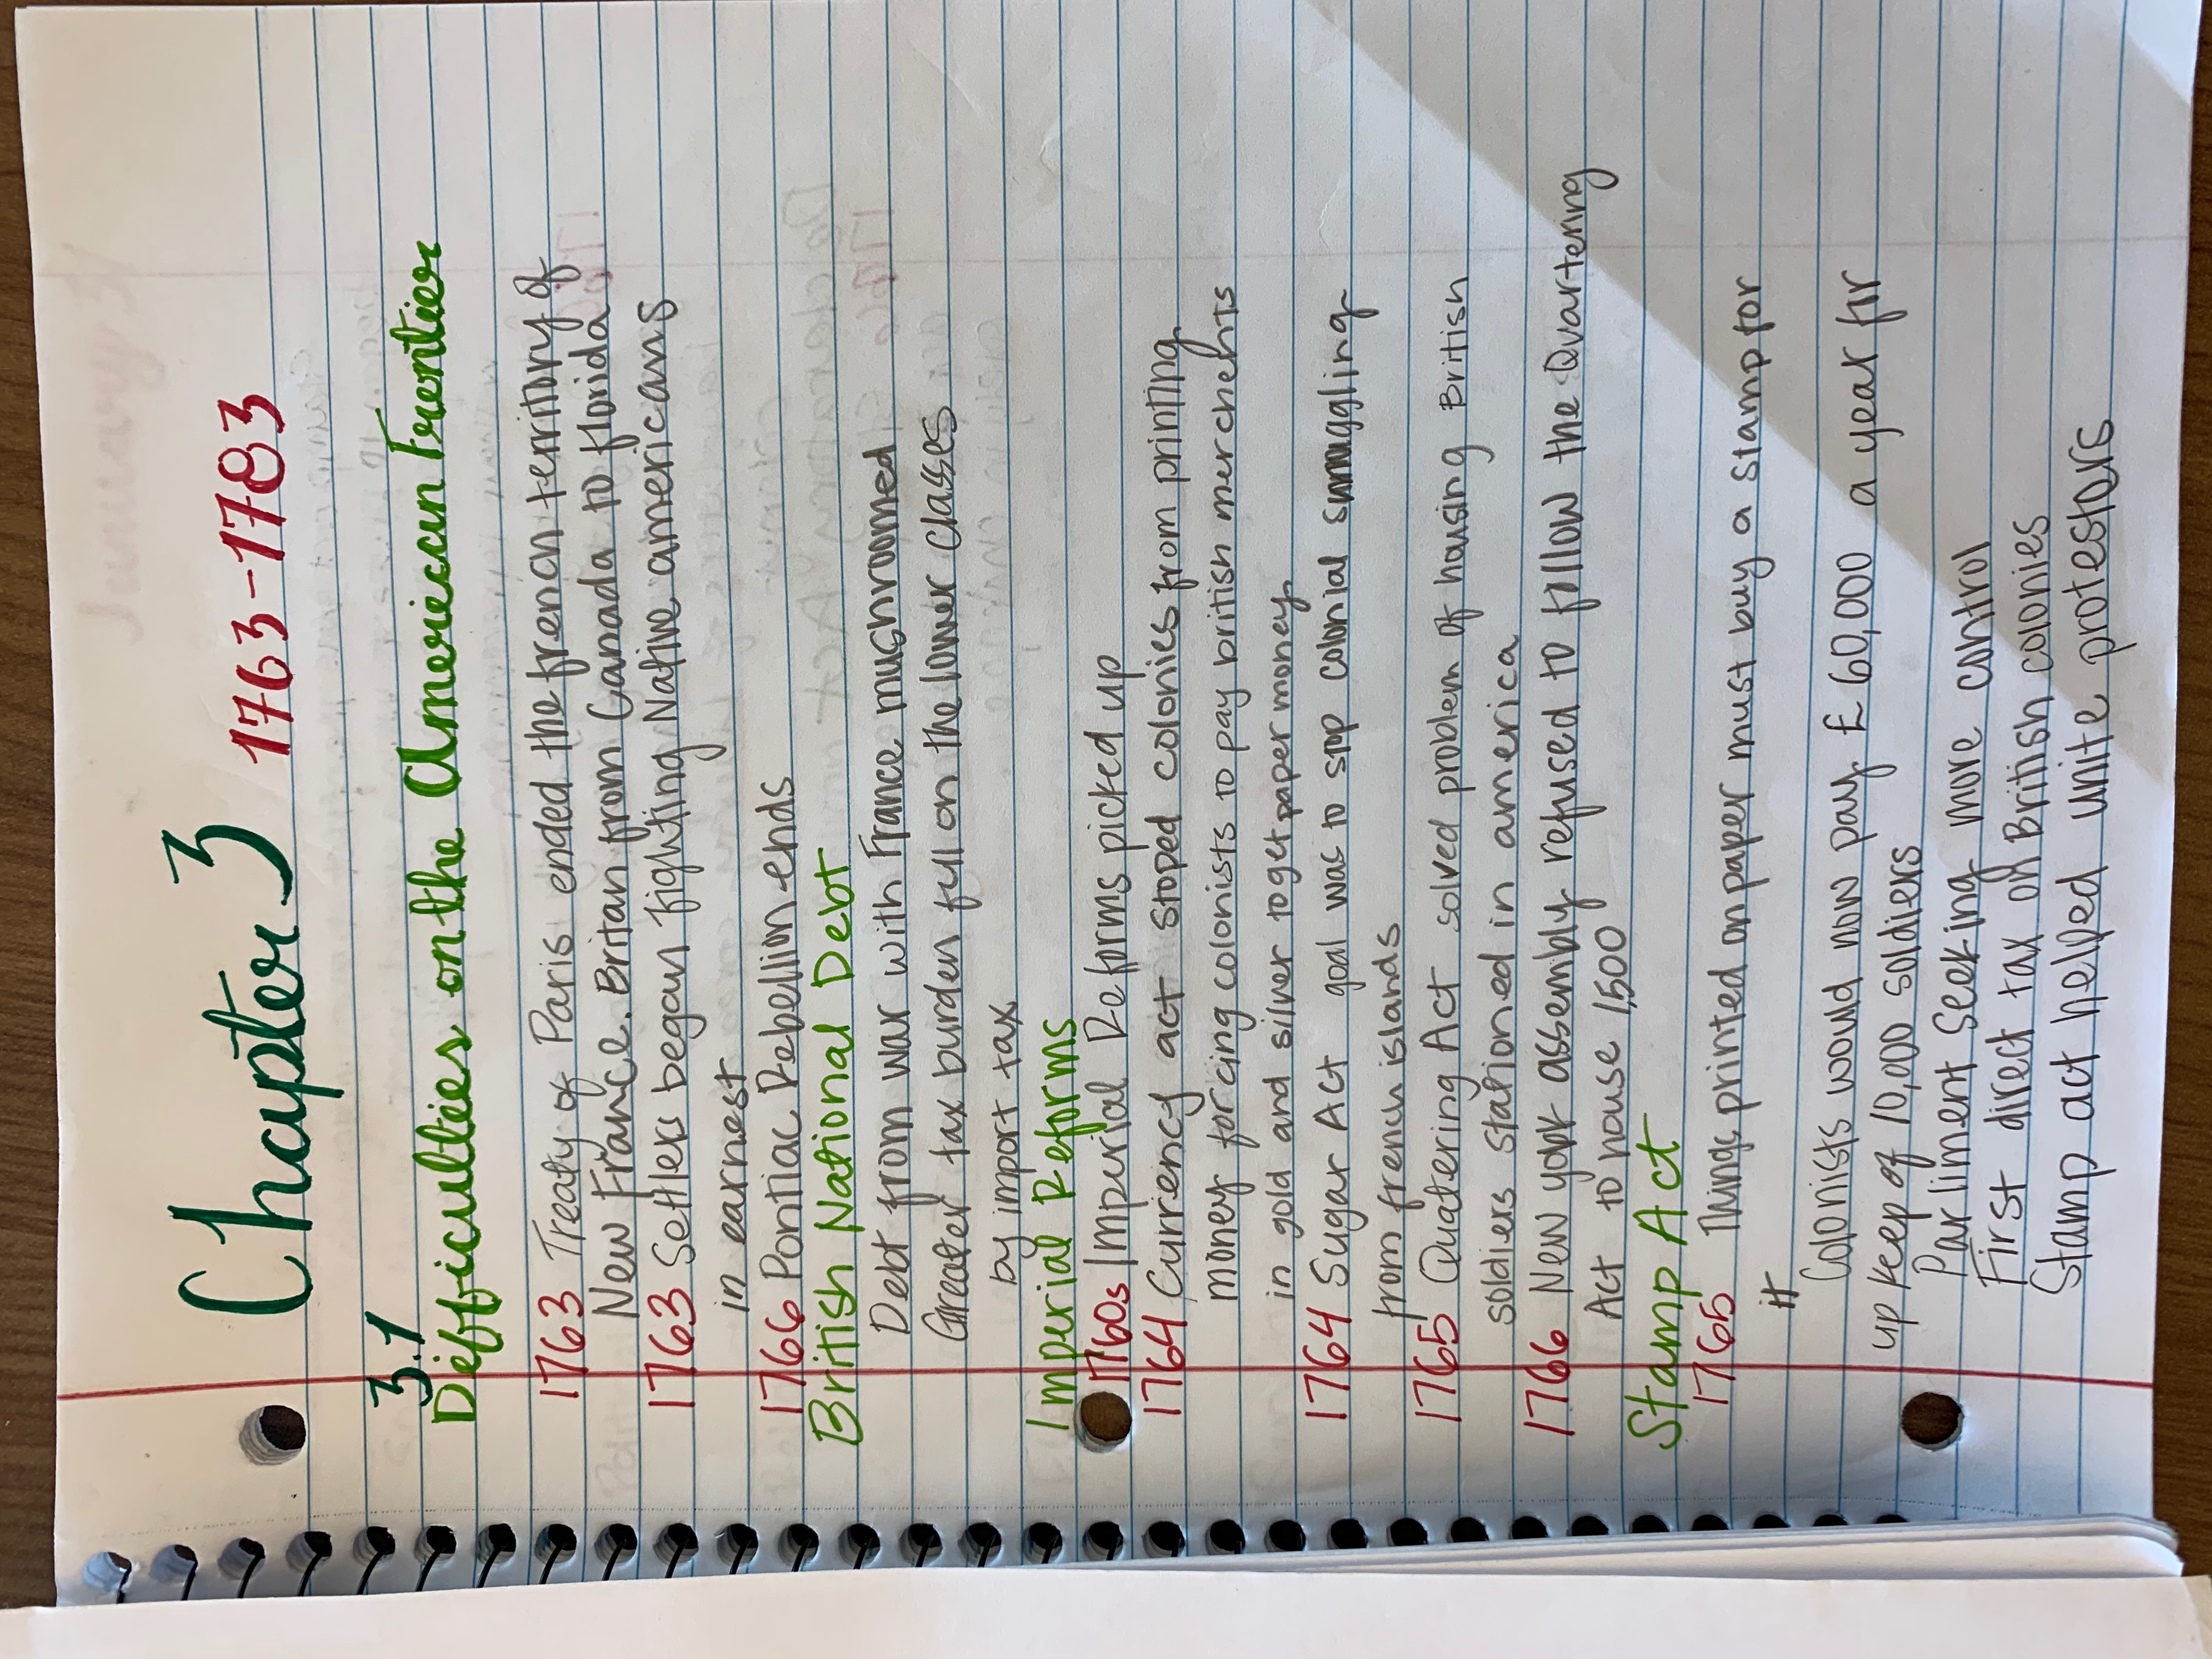 Chapter 3 1763-1783
3.1
Difficulties on the American Frontier
1763 Treaty of Paris ended the french territory of
New France. Britan from Canada to florida
1763 Settlers began fighting Native americans
in earnest
1766 Pontiac Rebellion ends
British National Debt
Debt from war with France mushroomed
Greater tax burden full on the lower classes
by import tax
Imperial Reforms
1760s Imperial Reforms picked up
1764 Currency act stoped colonies from printing
money forcing colonists to pay british merchents
in gold and silver to get paper money
1764 Sugar Act goal was to stop colonial smuggling
from french islands
1765 Quatering Act solved problem of housing British
soldiers stationed in america
1766 New york assembly refused to follow the Quartering
Act to house 1,500
Stamp Act
1765 Things printed on paper must buy a stamp for
it
Colonists would now pay £ 60,000 a year fir
up keep of 10,000 soldiers
Parliment seeking more control
First direct tax on British colonies
Stamp act helped unite protestors